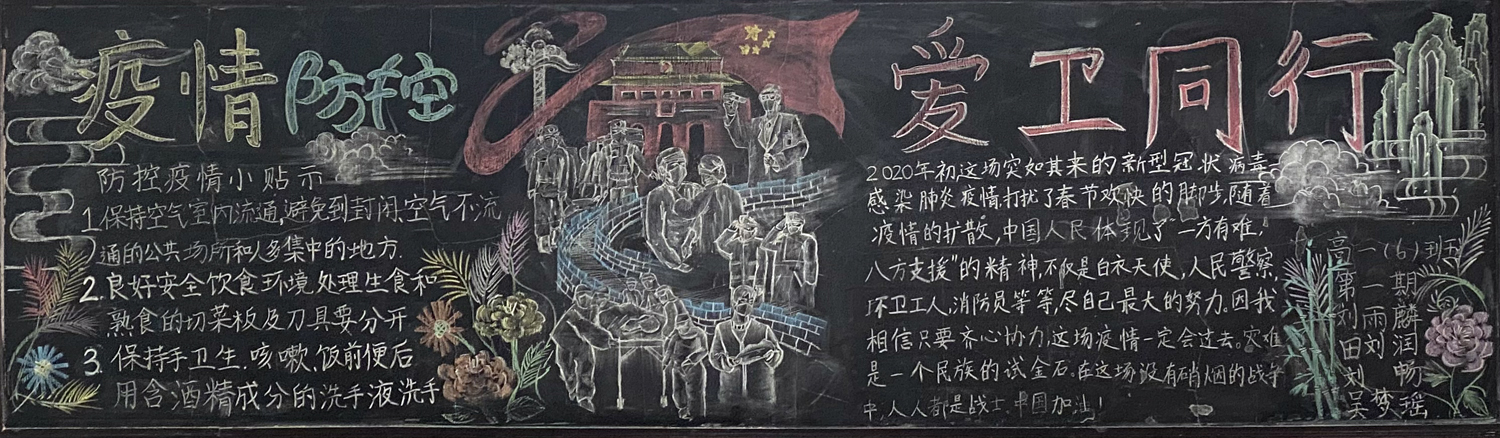 疫情防控
防控疫情小贴示
1.保持空气室内流通,避免到封闭、空气不流
通的公共场所和人多集中的地方.
2.良好安全饮食环境,处理生食和
熟食的切菜板及刀具要分开
3.保持手卫生.咳嗽,饭前便后
用含酒精成分的洗手液洗手
爱卫同行
2020年初这场突如其来的新型冠状病毒
感染肺炎疫情打扰了春节欢快的脚步,随着
疫情的扩散,中国人民体现了"一方有难,
八方支援"的精神,不仅是白衣天使,人民警察,
环卫工人,消防员等等,尽自己最大的努力。因我
相信只要齐心协力,这场疫情一定会过去。灾难
是一个民族的试金石。在这场没有硝烟的战争
中,人人都是战士.中国加油!
高一(6)班
第一期
刘雨麟
田刘润
刘畅
吴梦瑶